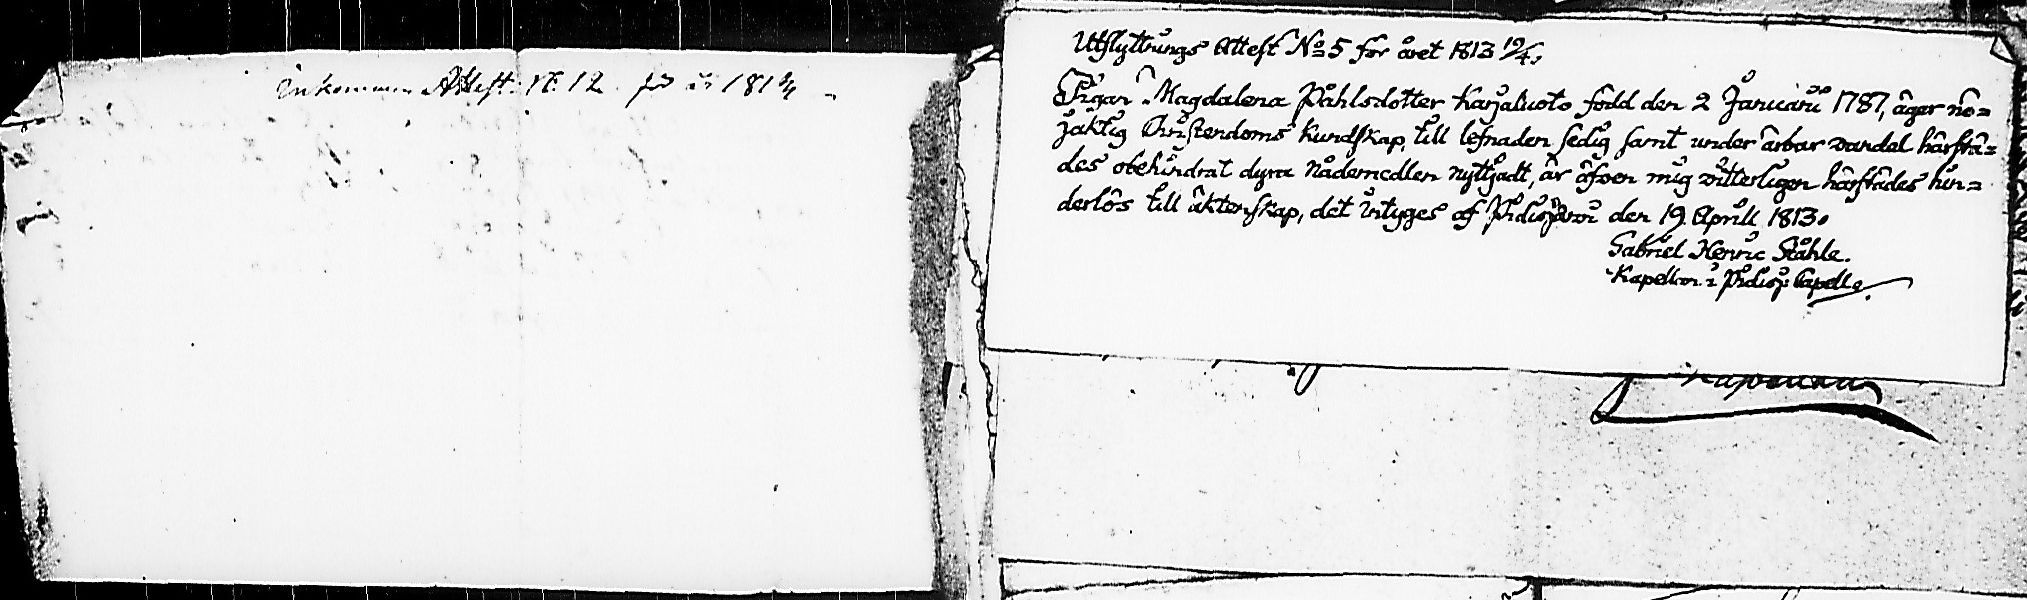 Inkommen Attest. N:o 12. för år 181¾ –
Utflyttnings Attest No 5 för året 1813 19/4.
Pigan Magdalena Påhlsdotter Karjaluoto född den 2 Januarii 1787, äger nö=
jaktig Christendoms kundskap, till lefnaden sedig samt under ärbar vandel härstä=
des obehindrat dyra nådemedlen nyttjadt, är äfven mig vitterligen härstädes hin=
derlös till äktenskap, det intyges af Pidisjärvi den 19 Aprill 1813.
Gabriel Henric Ståhle.
Kapellan i Pidisj: Capell.
Kapellan